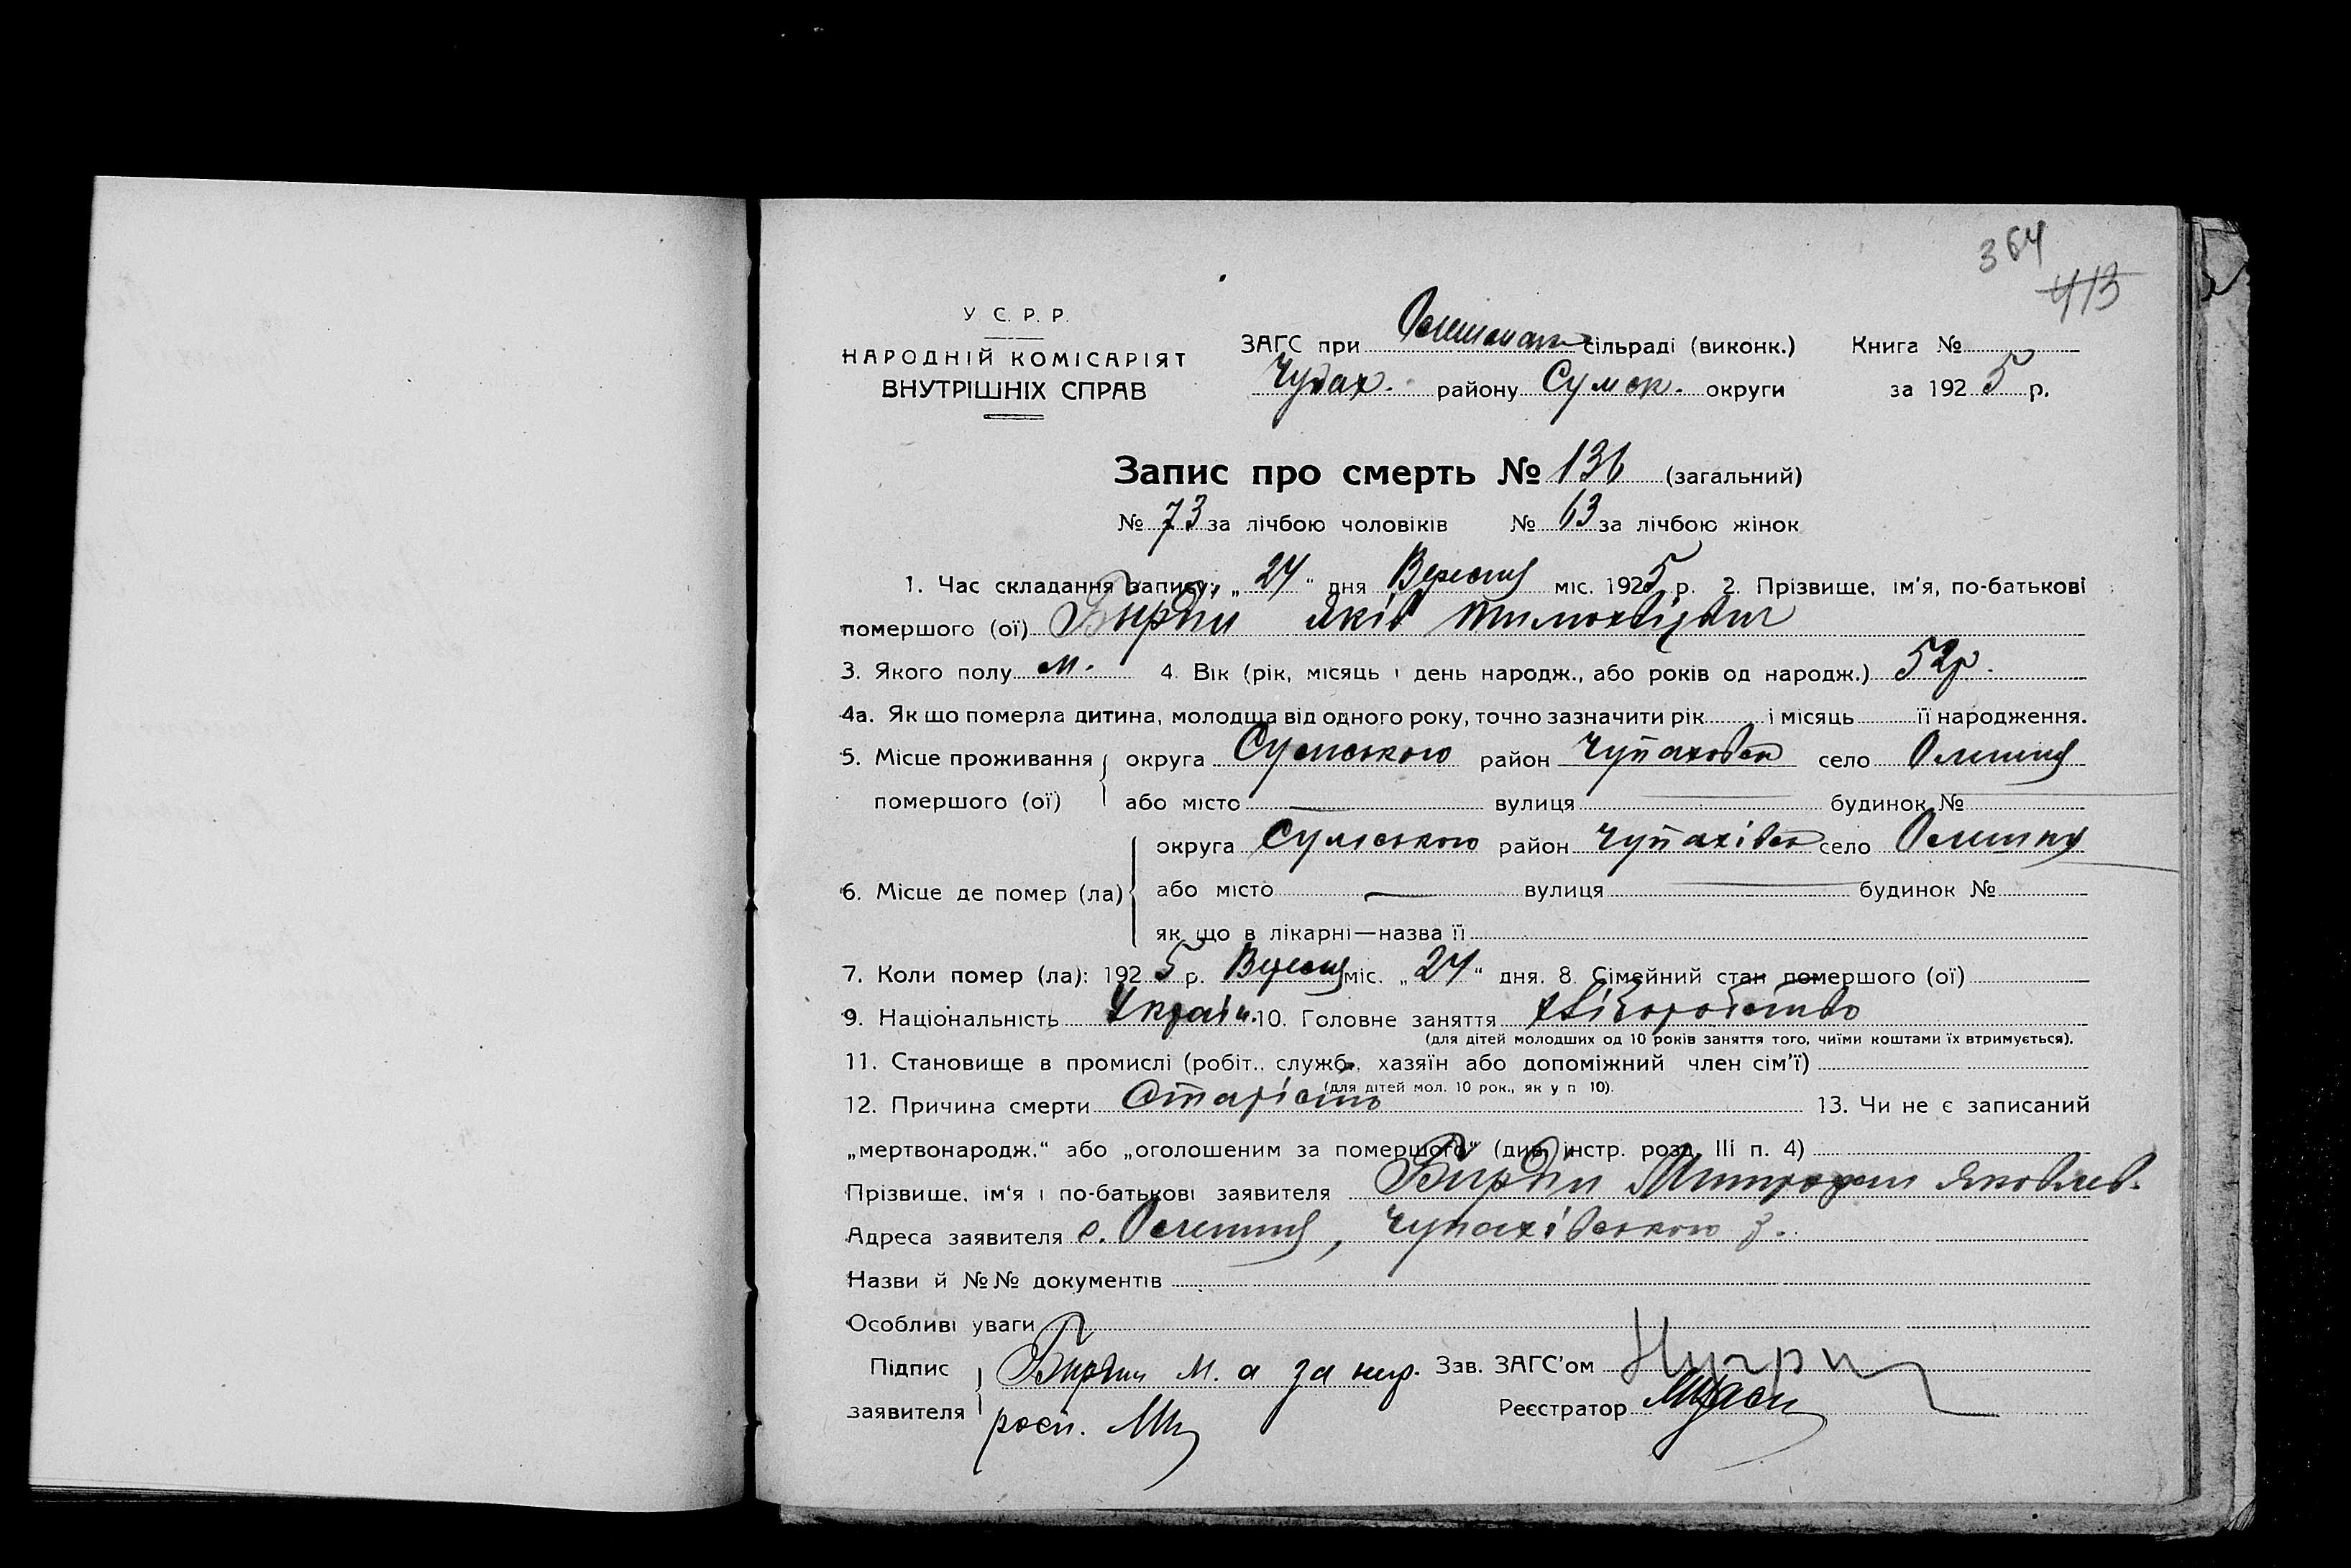 364
413
У С. Р. Р.
НАРОДНІЙ КОМІСАРІЯТ
ВНУТРІШНІХ СПРАВ
ЗАГС при сільраді (виконк.) Книга №
Чупах. району Сумск. округи за 1925 р.
Запис про смерть № 136 (загальний)
№ 73 за лічбою чоловіків № 63 за лічбою жінок
1. Час складання запису: „24“ дня Вересня міс. 1925 р. 2. Прізвище, ім'я, по-батькові
помершого (ої) Бирдін Яків
3. Якого полу м. 4. Вік (рік, місяць і день народж., або років од народж.) 52 р.
4а. Як що померла дитина, молодща від одного року, точно зазначити рік і місяць її народження.
5. Місце проживання округа Сумською район Чупаховск село Олешня
помершого (ої) або місто — вулиця — будинок №
округа Сумською район Чупахівск село Олешня
6. Місце де помер (ла) або місто — вулиця — будинок №
як що в лікарні—назва її
7. Коли помер (ла): 1925 р. Вересня міс. „24“ дня. 8. Сімейний стан помершого (ої)
9. Національність Украін. 10. Головне заняття хліборобство
(для дітей молодших од 10 років заняття того, чиїми коштами їх втримується).
11. Становище в промислі (робіт., служб., хазяїн або допоміжний член сім'ї)
(для дітей мол. 10 рок., як у п 10).
12. Причина смерти Старість 13. Чи не є записаний
„мертвонародж.“ або „оголошеним за помершого“ (див. інстр. розд. III п. 4)
Прізвище, ім'я і по-батькові заявителя Бирдін Митрофан Яковлев.
Адреса заявителя с. Олешня, Чупахівського р.
Назви й №№ документів
Особливі уваги
Підпис Бирдін М. а за нир. Зав. ЗАГС'ом
заявителя росп. Реєстратор